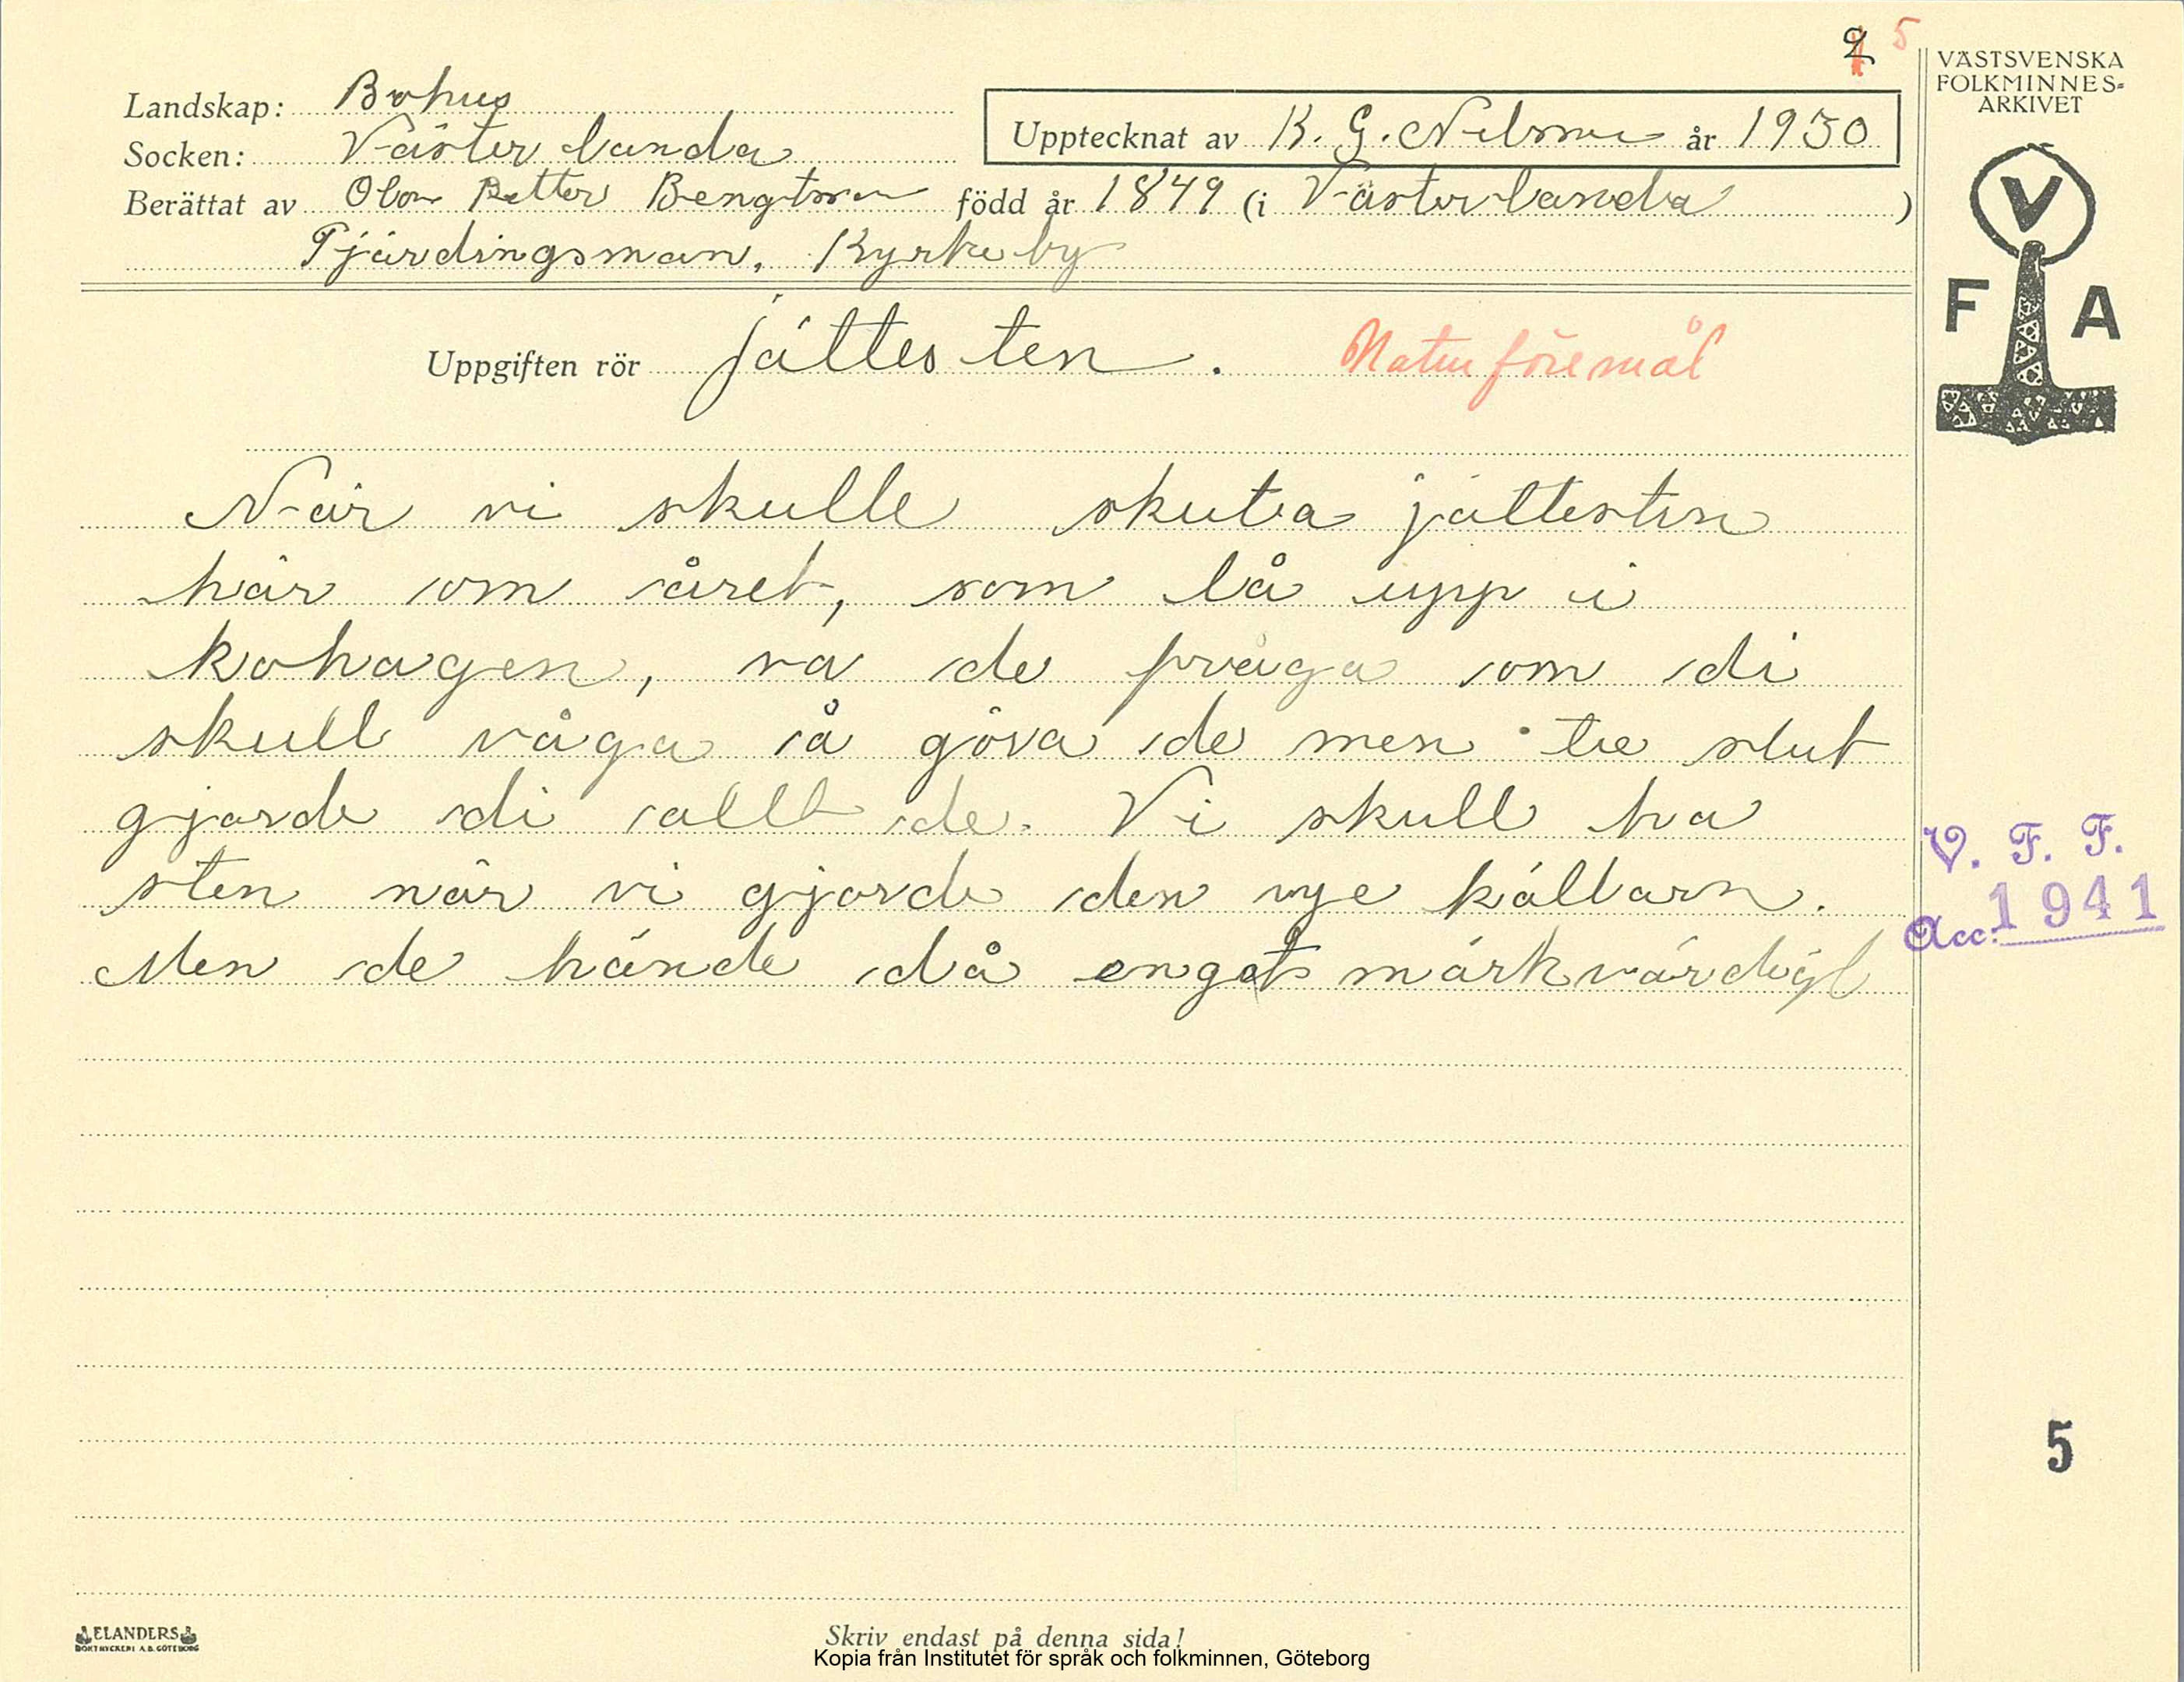 2 5
VÄSTSVENSKA
FOLKMINNES-
ARKIVET
Landskap: Bohus
Upptecknat av K. G. Nilsson år 1930
Socken: Västerlanda
Berättat av Olov Petter Bengtsson född år 1849 (i Västerlanda )
Fjärdingsman, Kyrkeby
V
F A
Uppgiften rör jättesten. Naturföremål
När vi skulle skuta jättesten
här om året, som lå upp i
kohagen, va de fråga om di
skull våga å göra de men te slut
gjorde di allt de. Vi skull ha
sten när vi gjorde den nye källarn.
Men de hände då enget märkvärdigt
V. F. F.
Acc: 1941
5
ELANDERS
BOKTRYCKERI A.B. GÖTEBORG
Skriv endast på denna sida!
Kopia från Institutet för språk och folkminnen, Göteborg